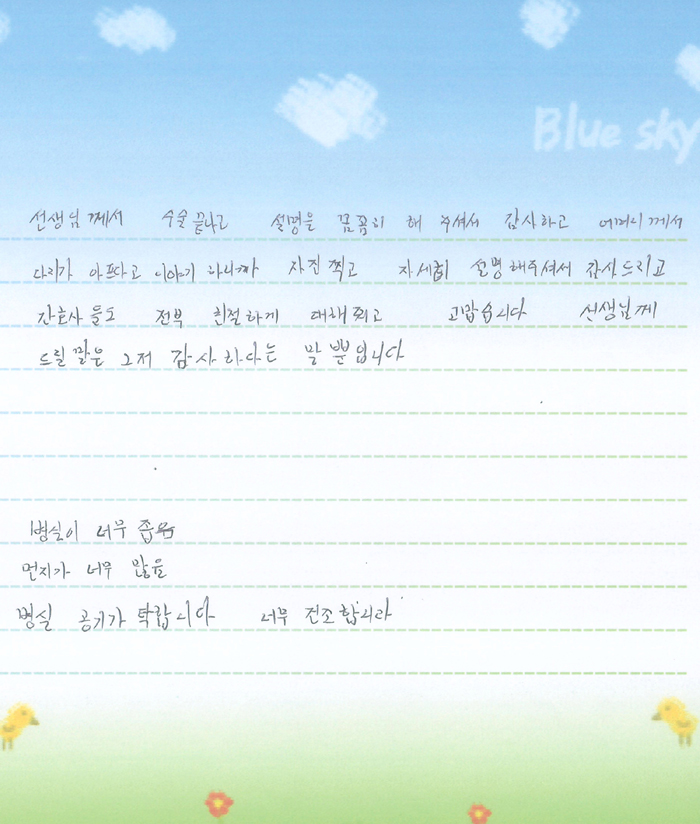 Blue sky
선생님께서 수술 끝나고 설명을 꼼꼼히 해 주셔서 감사하고 어머니께서
다리가 아프다고 이야기 하니까 사진 찍고 자세히 설명해주셔서 감사드리고
간호사들도 전부 친절하게 대해 줘고 고맙습니다 선생님께
드릴 말은 그저 감사하다는 말 뿐입니다
병실이 너무 좁
먼지가 너무 많음
병실 공기가 탁합니다 너무 건조합니다